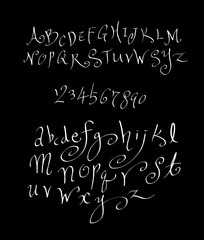 ABCDEFGHIJKLM
NOPQRSTUVWXYZ
1234567890
abcdefghijkl
mnopqrst
uvwxyz